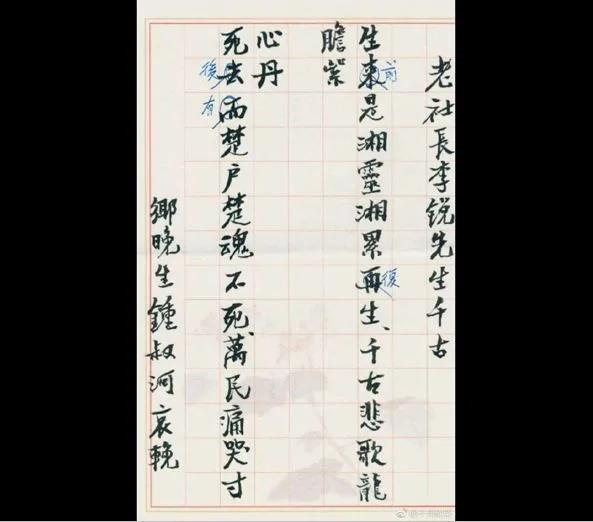 老社長李锐先生千古
生来是湘靈湘累再生、千古悲歌龍
前
復
膽紫
死去而楚户楚魂不死、萬民痛哭寸
後
有
心丹
鄉晚生鍾叔河哀輓